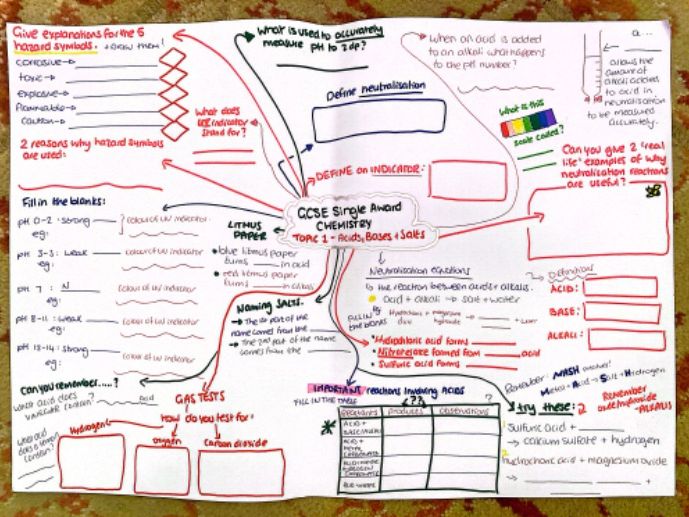 Give explanations for the 5
hazard symbols. + DRAW them!
corrosive →
toxic →
explosive →
flammable →
caution →
2 reasons why hazard symbols
are used:
What is used to accurately
measure pH to 2dp?
What does
UI indicator
stand for?
Define neutralisation
DEFINE an INDICATOR:
When an acid is added
to an alkali what happens
to the pH number?
What is this
scale called?
a...
allows the
amount of
alkali added
to acid in
neutralisation
to be measured
accurately.
Can you give 2 'real
life' examples of why
neutralisation reactions
are useful?
GCSE Single Award
CHEMISTRY
TOPIC 1 - Acids, Bases + Salts
Fill in the blanks:
pH 0-2: strong
eg:
colour of UI indicator
pH 3-5: weak
eg:
colour of UI indicator
pH 7: N
eg:
colour of UI indicator
pH 8-11: weak
eg:
colour of UI indicator
pH 12-14: strong
eg:
colour of UI indicator
LITMUS
PAPER
• blue litmus paper
turns in acid
• red litmus paper
turns in
Naming SALTS.
→ The 1st part of the
name comes from the
→ The 2nd part of the name
comes from the
Neutralisation equations
is the reaction between acids + alkalis.
acid + alkali → salt + water
FILL IN
THE BLANKS
• Hydrochloric acid forms
• Nitrates are formed from acid
• Sulfuric acid forms
Definitions
ACID:
BASE:
ALKALI:
Can you remember.....?
What acid does
vinegar contain? acid
What acid
does a lemon
contain?
GAS TESTS
How do you test for:
Hydrogen
Oxygen
Carbon dioxide
IMPORTANT reactions involving ACIDS
FILL IN THE TABLE
Reactants
products
observations
ACID +
ACID +
METAL
Remember: MASH
Metal + Acid → Salt + Hydrogen
try these: 2
Remember
- ALKALIS
1 Sulfuric Acid +
→ calcium sulfate + hydrogen
2 hydrochloric acid + magnesium oxide
→ +